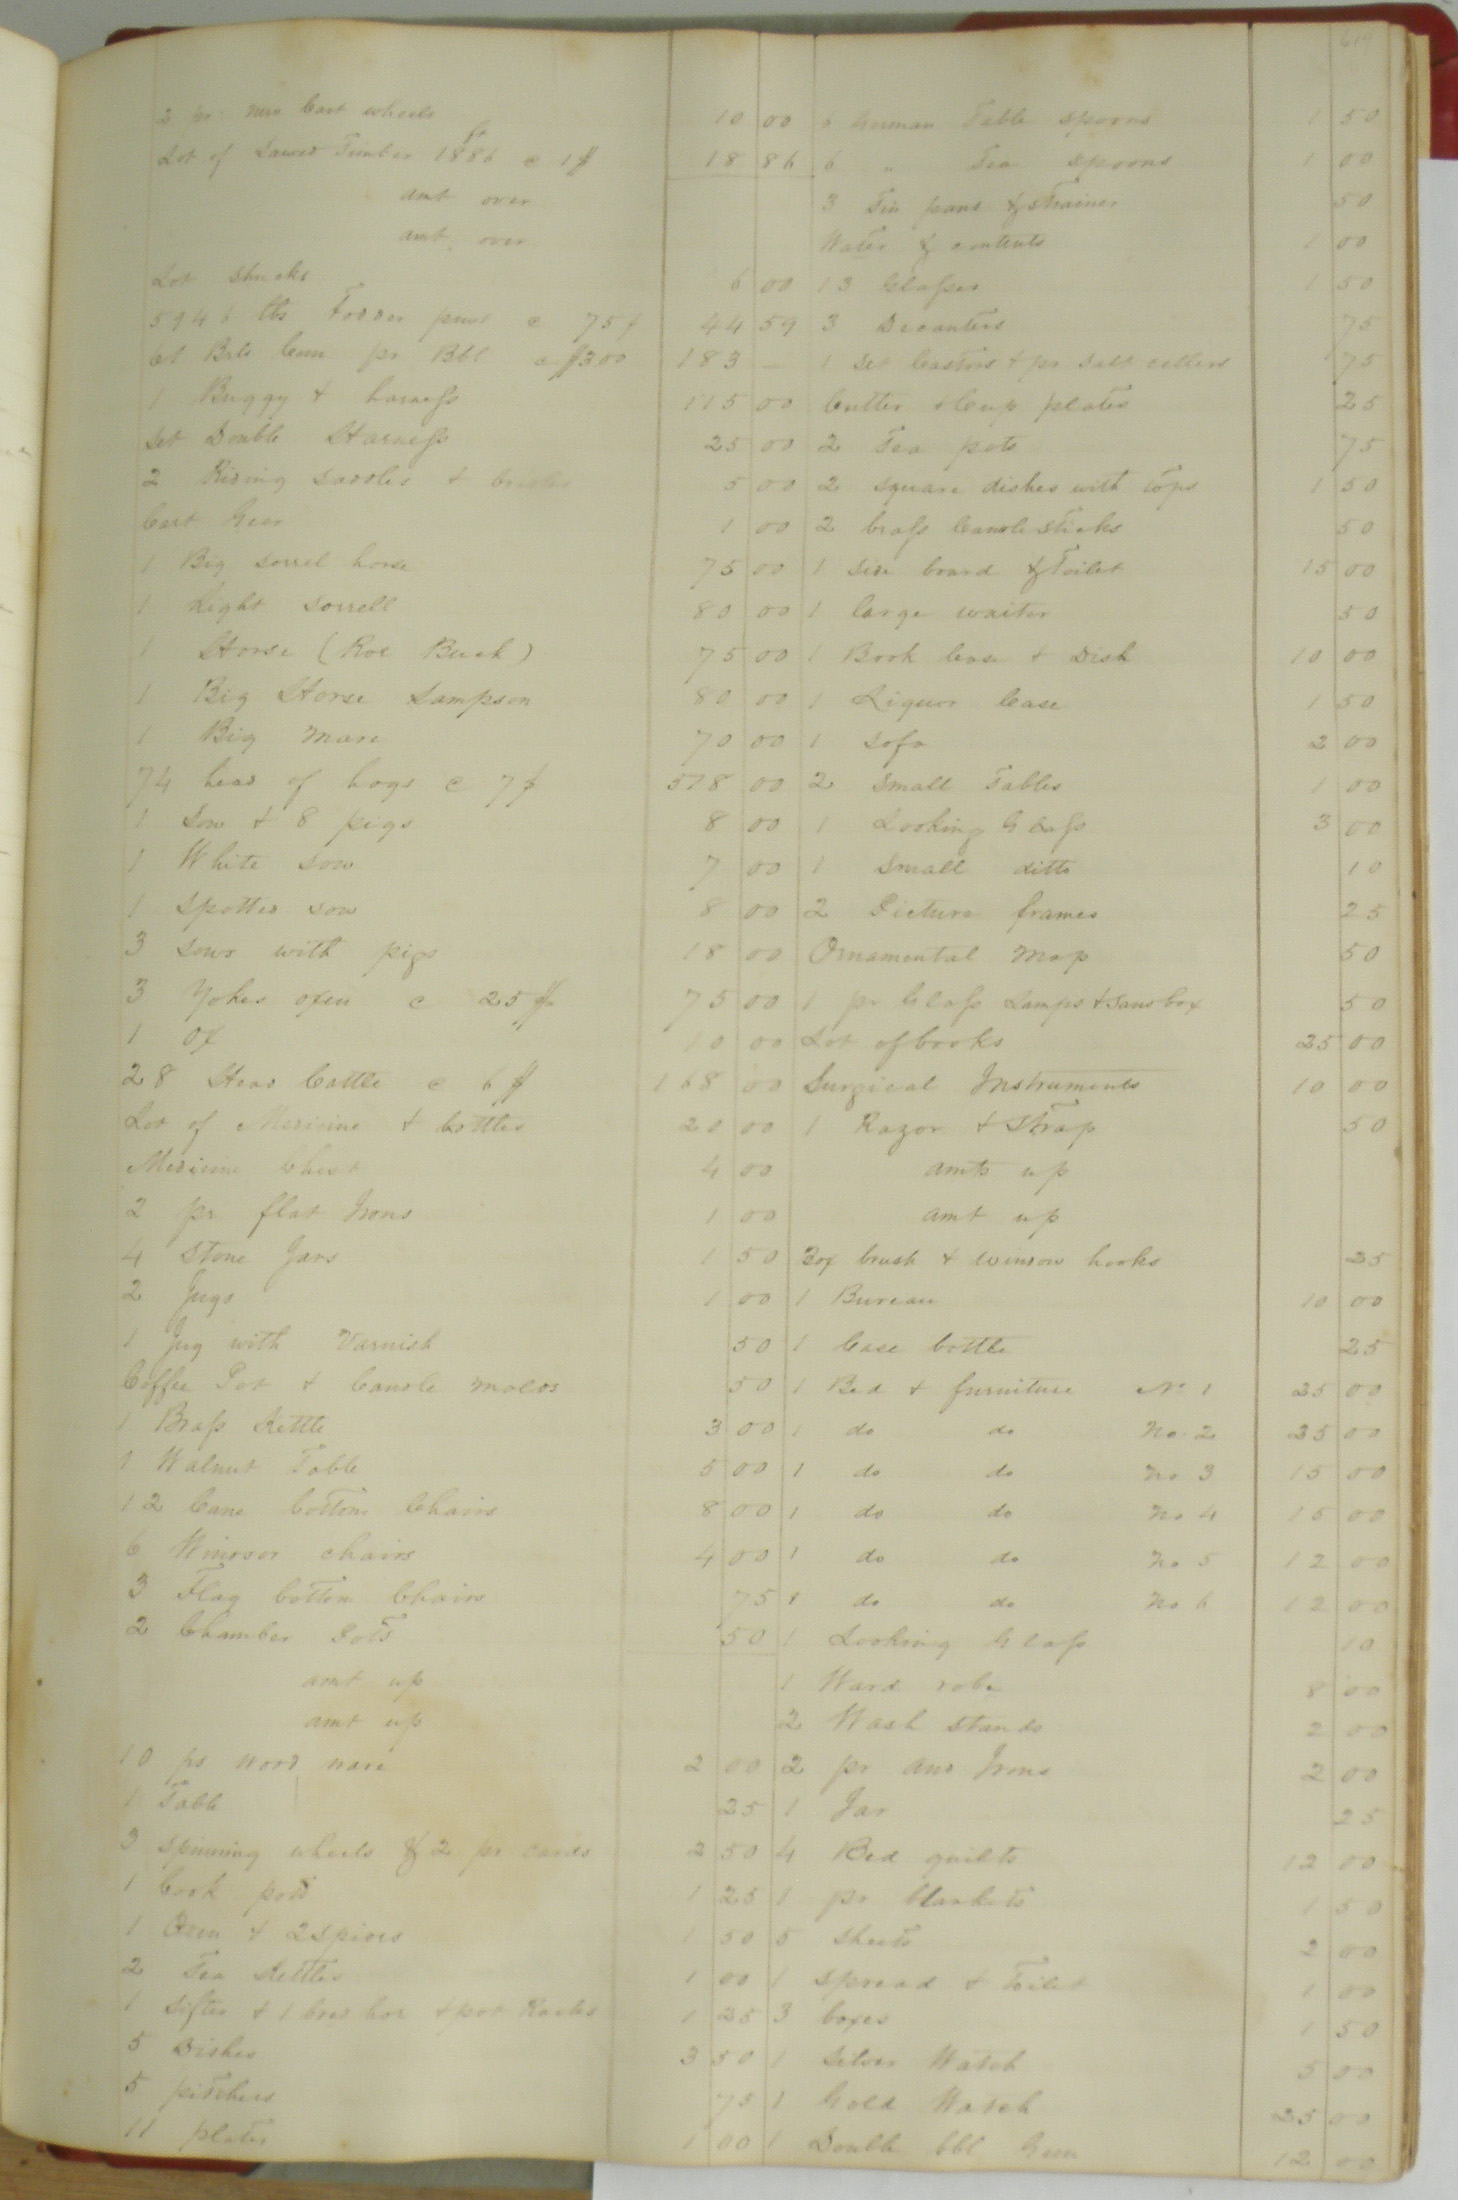 614
2 pr new Cart wheels 10 00
Lot of Sawed Timber 1886 ft @ 1$ 18 86
amt over
amt over
Lot Shucks 6 00
5946 lbs Fodder pr @ 75 44 59
61 Brls Corn pr Bbl @ $3.00 183 —
1 Buggy & harness 115 00
Set Double Harness 25 00
2 Riding saddles & bridles 5 00
Cart Gear 1 00
1 Big sorrel horse 75 00
1 Light sorrell 80 00
1 Horse (Roe Buck) 75 00
1 Big Horse Sampson 80 00
1 Big Mare 70 00
74 head of hogs @ 7$ 518 00
1 Sow & 8 pigs 8 00
1 White sow 7 00
1 spotted sow 8 00
3 sows with pigs 18 00
3 Yokes oxen @ 25$ 75 00
1 ox 10 00
28 Head Cattle @ 6$ 168 00
Lot of Medicine & bottles 20 00
Medicine Chest 4 00
2 pr flat Irons 1 00
4 Stone Jars 1 50
2 Jugs 1 00
1 Jug with Varnish 50
Coffee Pot & Candle molds 50
1 Brass Kettle 3 00
1 Walnut Table 5 00
12 Cane bottom Chairs 8 00
6 Windsor chairs 4 00
3 Flag bottom Chairs 75
2 Chamber Pots 50
amt up
amt up
10 ps wood ware 2 00
1 Table 25
3 spinning wheels & 2 pr cards 2 50
1 Cook pots 1 25
1 Oven & 2 spiders 1 50
2 Tea Kettles 1 00
1 Sifter & 1 bred hoe & pot Racks 1 25
5 Dishes 3 50
5 pitchers 75
11 plates 1 00
6 German Table spoons 1 50
6 " Tea spoons 1 00
3 Tin pans & strainer 50
Water & contents 1 00
13 Glasses 1 50
3 Decanters 75
1 set Castors & pr salt cellers 75
Cutter & Cup plates 25
2 Tea pots 75
2 square dishes with tops 1 50
2 brass Candlesticks 50
1 side board & Toilet 15 00
1 large waiter 50
1 Book Case & Disk 10 00
1 Liquor Case 1 50
1 sofa 2 00
2 small Tables 1 00
1 Looking Glass 3 00
1 small ditto 10
2 Picture frames 25
Ornamental Map 50
1 pr Glass Lamps & sand box 50
Lot of books 25 00
Surgical Instruments 10 00
1 Razor & Strap 50
amts up
amt up
Box brush & window hooks 25
1 Bureau 10 00
1 Case bottle 25
1 Bed & furniture No 1 25 00
1 do do No 2 25 00
1 do do No 3 15 00
1 do do No 4 15 00
1 do do No 5 12 00
1 do do No 6 12 00
1 Looking Glass 10
1 Ward robe 8 00
2 Wash stands 2 00
2 pr and Irons 2 00
1 Jar 25
4 Bed quilts 12 00
1 pr blankets 1 50
5 sheets 2 00
1 spread & Toilet 1 00
3 boxes 1 50
1 silver Watch 5 00
1 Gold Watch 25 00
1 Double bbl Gun 12 00